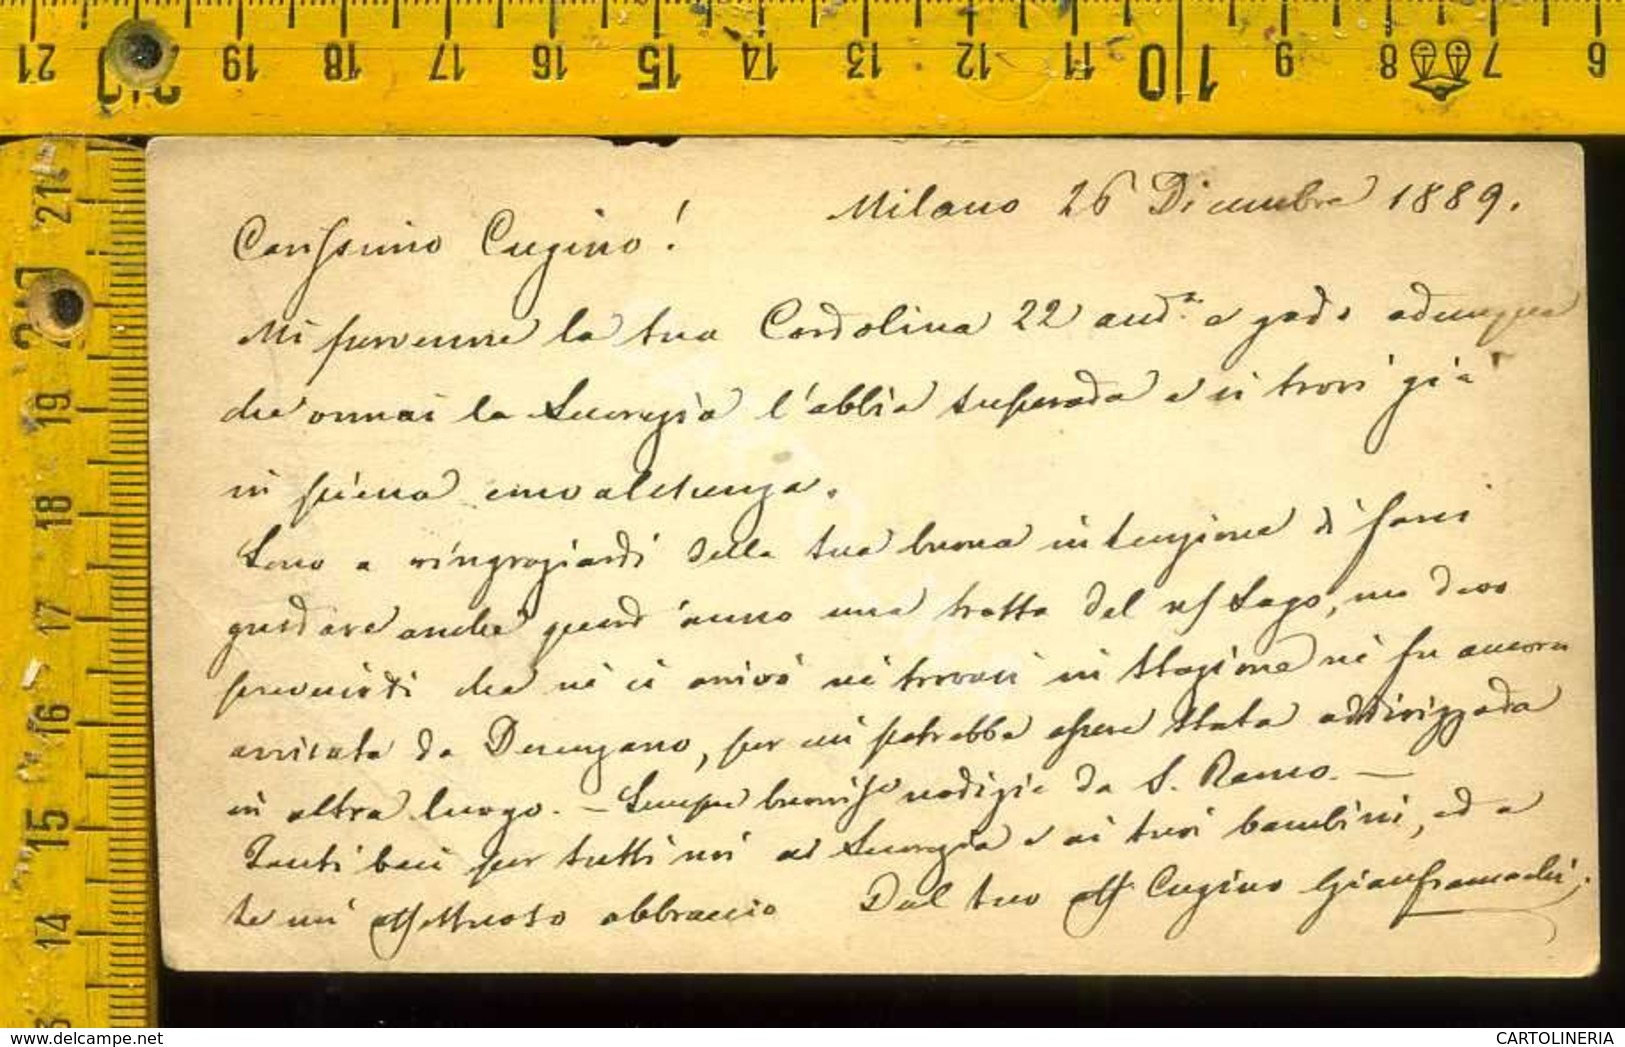 21 20 19 18 17 16 15 14 13 12 11 10 9 8 7 6
21
20
19
18
17
16
15
14
Milano 26 Dicembre 1889.
Carissimo Cugino!
Mi pervenne la tua Cartolina 22 and.e e godo adunque
che ormai la Lucrezia l'abbia superata e si trovi già
in piena convalescenza.
Sono a ringraziarti della tua buona intenzione di farci
gustare anche quest'anno una trotta del Lago, ma devo
prevenirti che nè ci arrivò nè trovasi in Stazione nè fu ancora
avvisata da Desenzano, per cui potrebbe essere stata addirizzata
in altro luogo. - Sempre buonisse notizie da S. Remo. -
Tanti baci per tutti noi alla Lucrezia e ai tuoi bambini, ed a
te un affettuoso abbraccio Dal tuo aff Cugino
CARTOLINERIA